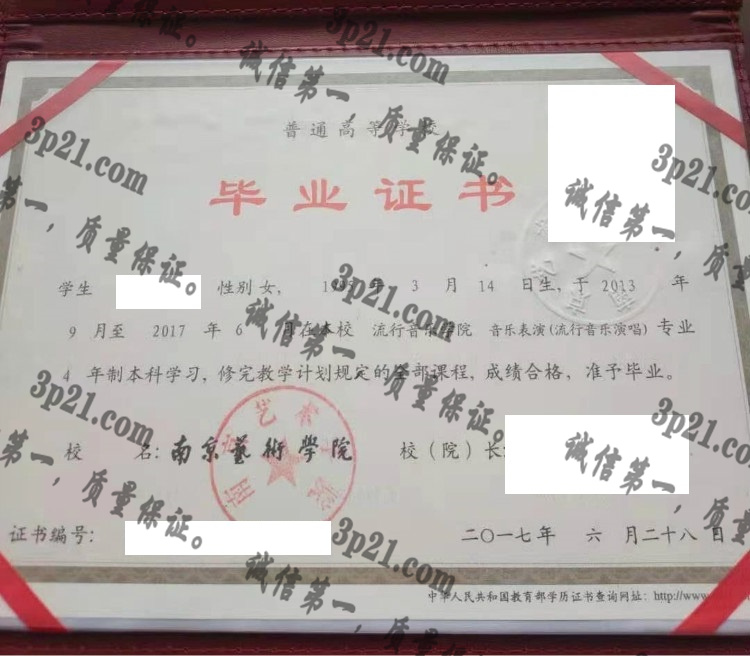 3p21.com
诚信第一，质量保证。
普通高等学校
3p21.com
3p21.com
毕业证书
诚信第一，质
第一，质量保证。
学生 性别 女， 1995 年 3 月 14 日生，于 2013 年
3p21.com
9 月至 2017 年 6 月在本校 流行音乐学院 音乐表演(流行音乐演唱) 专业
诚信第一，质量保证。
4 年制本科学习，修完教学计划规定的全部课程，成绩合格，准予毕业。
3p21.com
3p21.com
校 名：南京藝術學院 校（院）长：
南京艺术学院
诚信第一，质
第一，质量保证。
证书编号： 二〇一七年 六 月二十八日
3p21.com
诚信第一，质量保证。
中华人民共和国教育部学历证书查询网址：http://www.